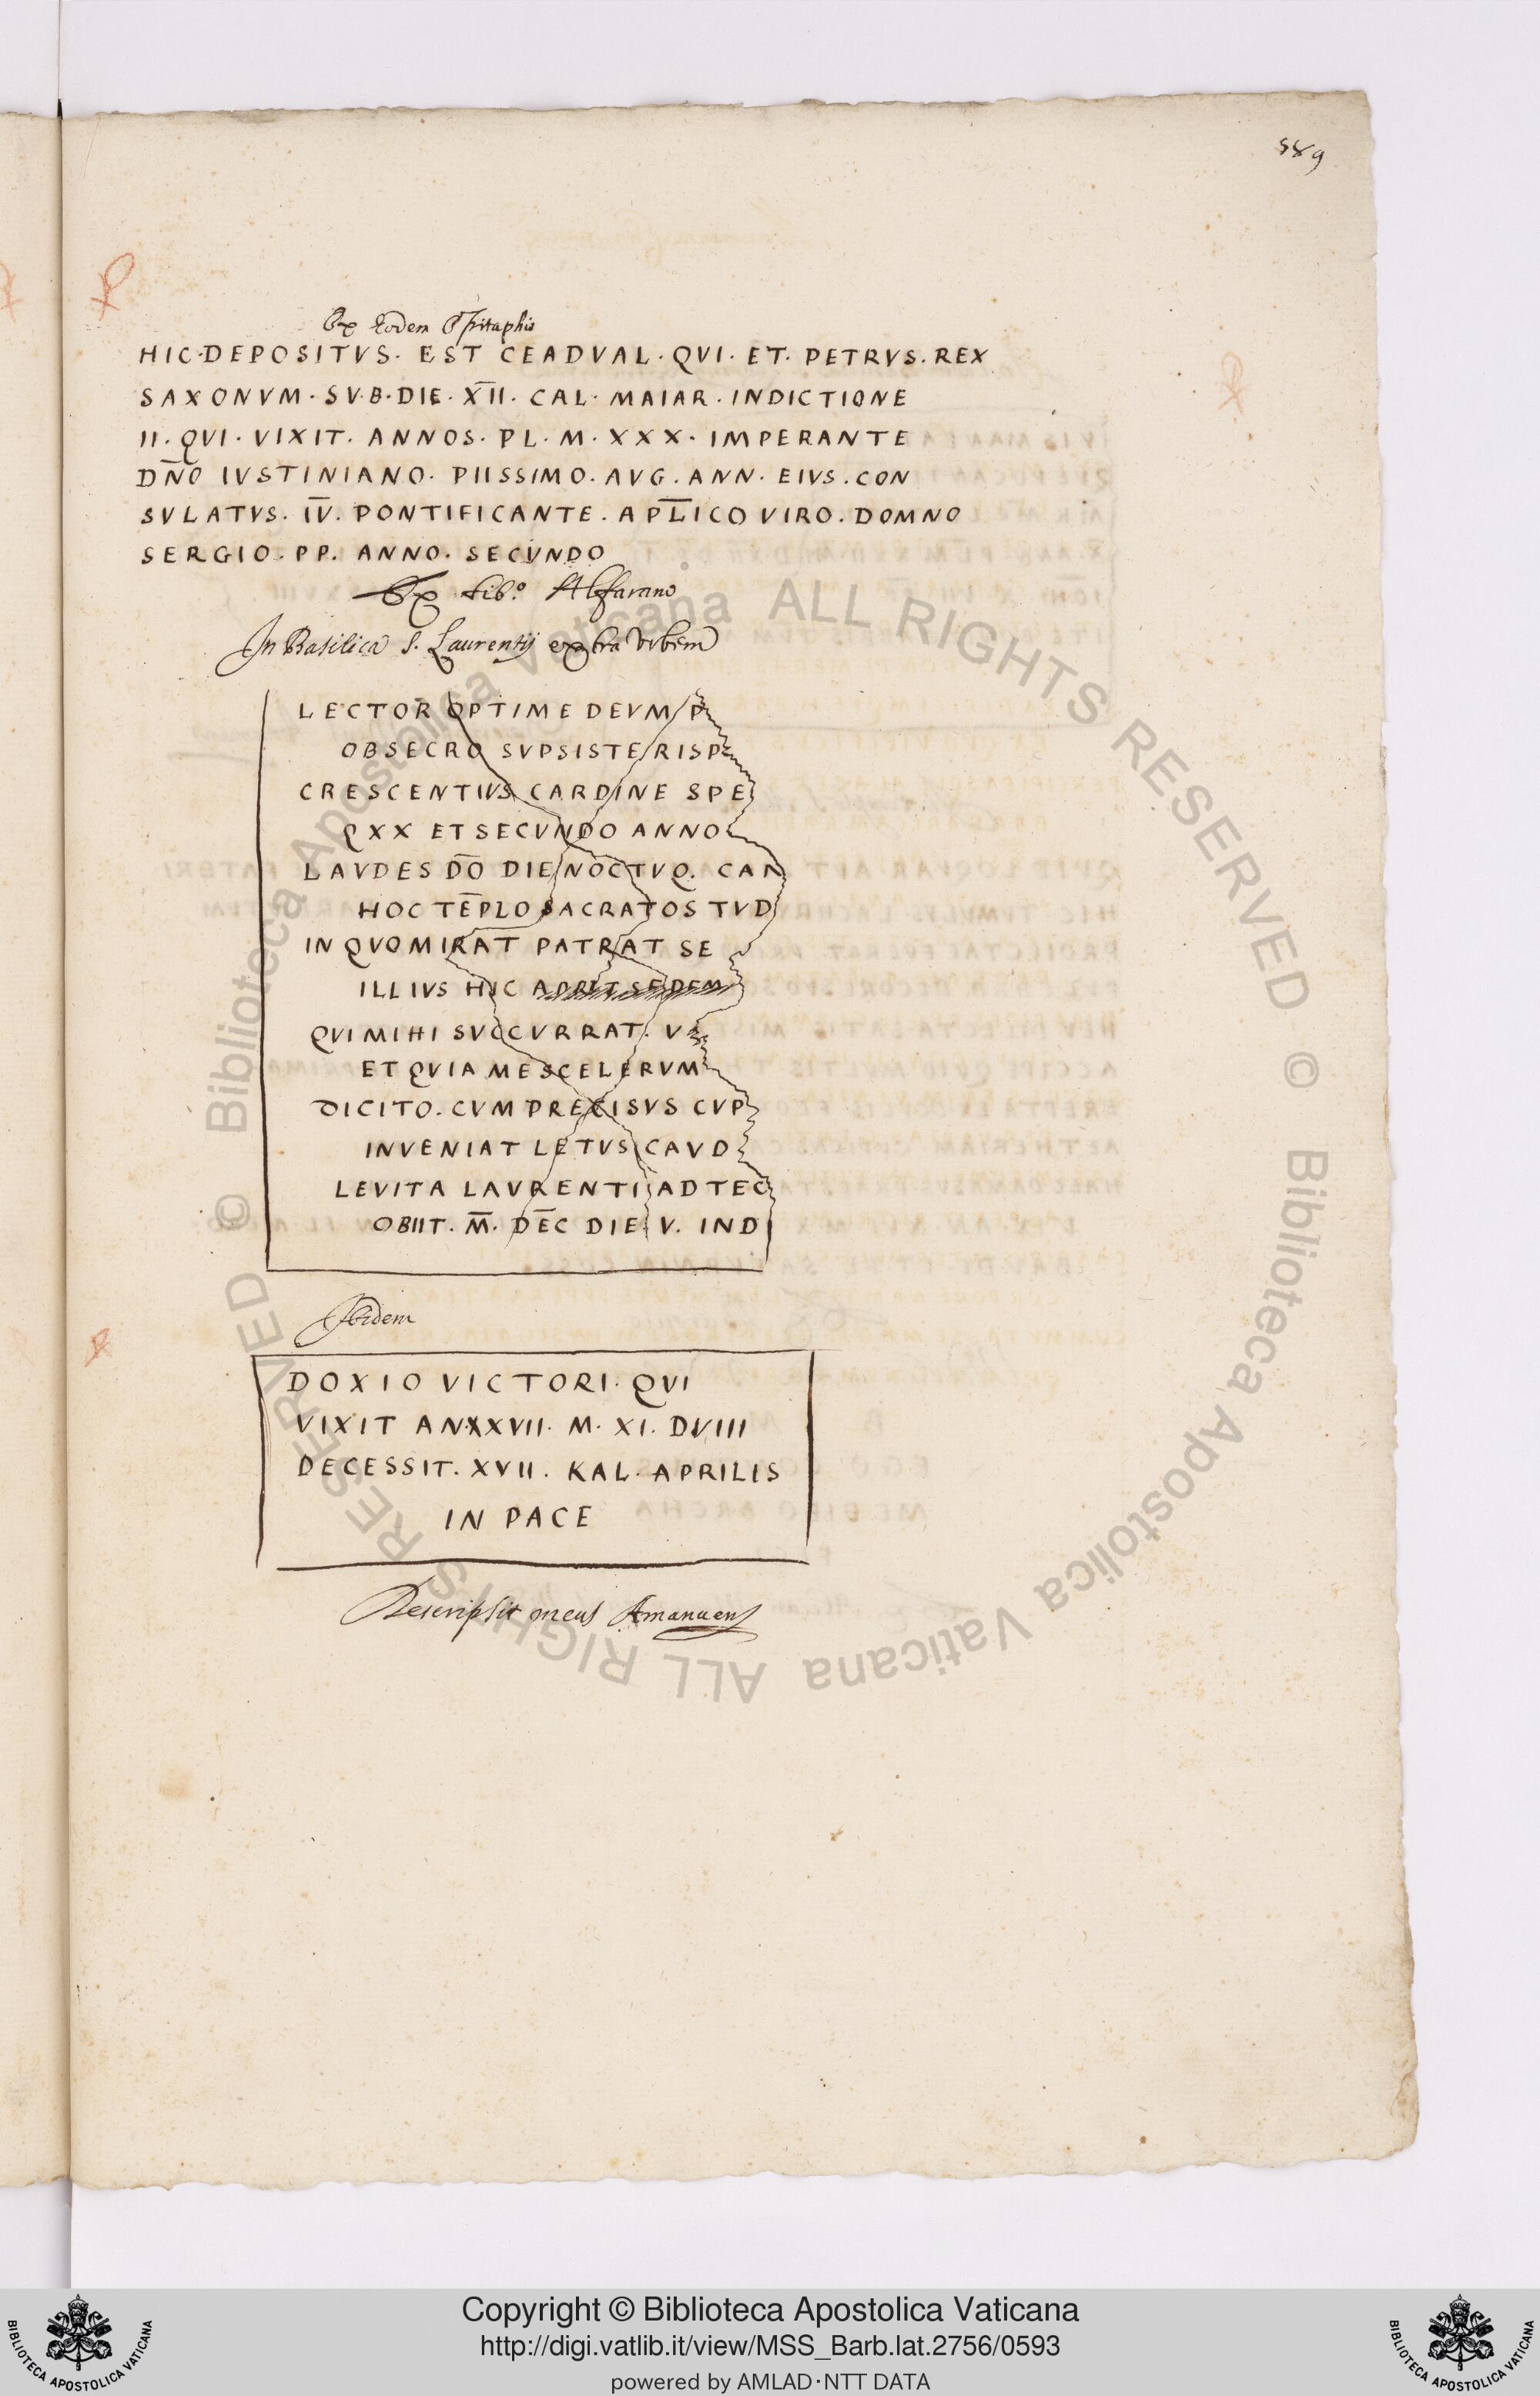 589
Ex Eodem Epitaphio
HIC·DEPOSITVS· EST CEADVAL· QVI· ET· PETRVS· REX
SAXONVM· SV·B·DIE· X̅II· CAL· MAIAR· INDICTIONE
II· QVI· VIXIT· ANNOS· PL· M· XXX· IMPERANTE
DN̅O IVSTINIANO· PIISSIMO· AVG· ANN· EIVS· CON
SVLATVS· I̅V· PONTIFICANTE· APL̅ICO VIRO· DOMNO
SERGIO· PP· ANNO· SECVNDO
Ex Tib.º Alfarano
In Basilica S. Laurentij extra Vrbem
LECTOR OPTIME DEVM P
OBSECRO SVPSISTE RISP
CRESCENTIVS CARDINE SPE
QXX ET SECVNDO ANNO
LAVDES D̅O DIE NOCTVQ. CAN
HOC TE̅PLO SACRATOS TVD
IN QVO MIRAT PATRAT SE
ILLIVS HIC APRIT SEDEM
QUI MIHI SVCCVRRAT. V
ET QVIA ME SCELERVM
DICITO. CVM PRECISVS CVP
INVENIAT LETVS CAVD
LEVITA LAVRENTII AD TEC
OBIIT. M̅. DE̅C DIE V. IND
Ibidem
DOXIO VICTORI· QVI
VIXIT ANXXVII· M· XI· DVIII
DECESSIT· XVII· KAL· APRILIS
IN PACE
Descripsit meus Amanuens
Copyright © Biblioteca Apostolica Vaticana
http://digi.vatlib.it/view/MSS_Barb.lat.2756/0593
powered by AMLAD·NTT DATA
BIBLIOTECA APOSTOLICA VATICANA
BIBLIOTECA APOSTOLICA VATICANA
© Biblioteca Apostolica Vaticana ALL RIGHTS RESERVED
© Biblioteca Apostolica Vaticana ALL RIGHTS RESERVED